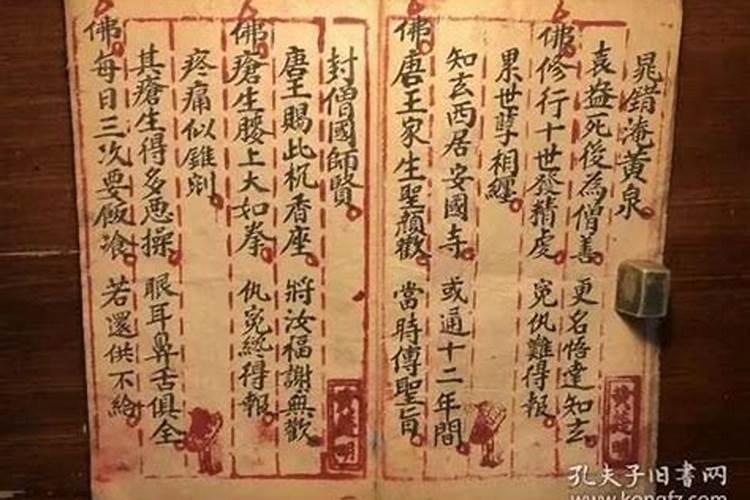 晁錯淹黃泉
袁益死後為僧善 更名悟達知玄
佛修行十世登精虔 冤仇難得報
累世孽相纏
知玄西居安國寺 或通十二年間
佛唐王家生聖顏歡 當時傳聖旨
封僧國師賢
唐王賜此杌香座 將汝福謝無歡
佛瘡生腰上大如拳 仇冤終得報
疼痛似錐剜
其瘡生得多惡操 眼耳鼻舌俱全
佛每日三次要飯飡 若還供不給
孔夫子旧书网